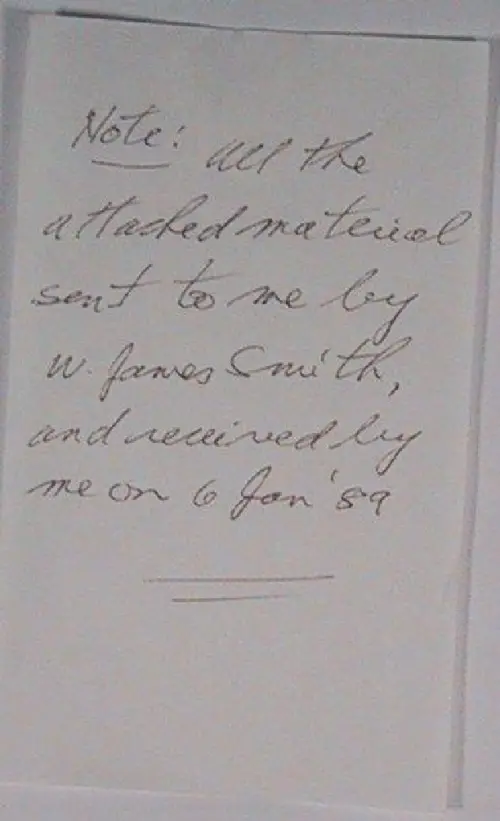 Note: All the
attached material
sent to me by
W. James Smith,
and received by
me on 6 Jan '89